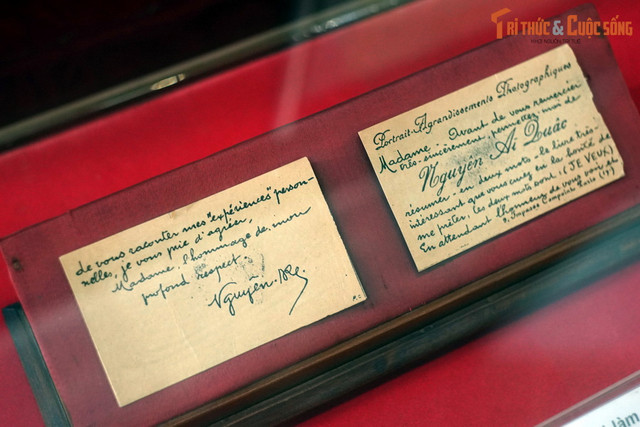 TRI THỨC & CUỘC SỐNG
Portrait-Agrandissements Photographiques
Madame, Avant de vous remercier
très-sincèrement, permettez moi de
Nguyên Ai Quâc
résumer, en deux mots, le livre très-
intéressant que vous avez eu la bonté de
me prêter. Ces deux mots sont: (JE VEUX)
9, Impasse Compoint Paris (17)
En attendant l'honneur de vous voir, et
de vous raconter mes "expériences" person-
nelles, je vous prie d'agréer,
Madame, l'hommage de mon
profond respect.
Nguyên.
làm